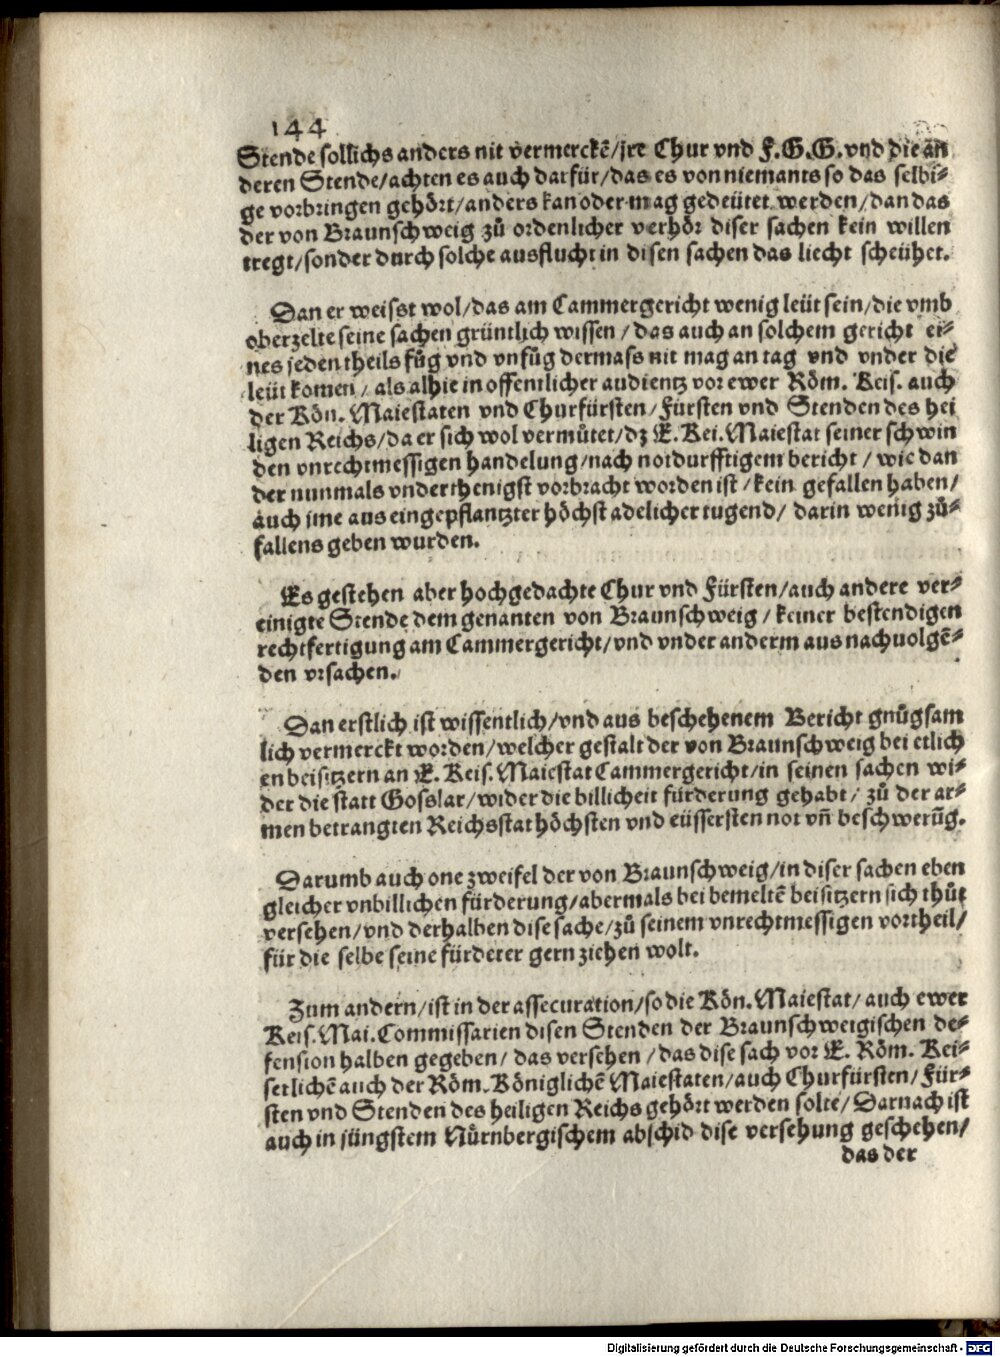 144
Stende sollichs anders nit vermerckẽ/jre Chur vnd F.G.G. vnd die an
deren Stende/achten es auch darfür/das es von niemants so das selbi⸗
ge vorbringen gehört/anders kan oder mag gedeütet werden/dan das
der von Braunschweig zů ordenlicher verhör diser sachen kein willen
tregt/sonder durch solche ausflucht in disen sachen das liecht scheühet.
Dan er weisst wol/das am Cammergericht wenig leüt sein/die vmb
oberzelte seine sachen grüntlich wissen/das auch an solchem gericht ei⸗
nes jeden theils fůg vnd vnfůg dermass nit mag an tag vnd vnder die
leüt komen/als alhie in offentlicher audientz vor ewer Röm. Keis. auch
der Kön. Maiestaten vnd Churfürsten/Fürsten vnd Stenden des hei
ligen Reichs/da er sich wol vermůtet/dz E. Kei. Maiestat seiner schwin
den vnrechtmessigen handelung/nach notdurfftigem bericht/wie dan
der nunmals vnderthenigst vorbracht worden ist/kein gefallen haben/
auch jme aus eingepflantzter höchst adelicher tugend/darin wenig zů⸗
fallens geben wurden.
Es gestehen aber hochgedachte Chur vnd Fürsten/auch andere ver⸗
einigte Stende dem genanten von Braunschweig/keiner bestendigen
rechtfertigung am Cammergericht/vnd vnder anderm aus nachuolgẽ⸗
den vrsachen.
Dan erstlich ist wissentlich/vnd aus beschehenem Bericht gnůgsam
lich vermerckt worden/welcher gestalt der von Braunschweig bei etlich
en beisitzern an E. Keis. Maiestat Cammergericht/in seinen sachen wi⸗
der die statt Gosslar/wider die billicheit fürderung gehabt/zů der ar⸗
men betrangten Reichsstat höchsten vnd eüssersten not vñ beschwerũg.
Darumb auch one zweifel der von Braunschweig/in diser sachen eben
gleicher vnbillichen fürderung/abermals bei bemeltẽ beisitzern sich thůt
versehen/vnd derhalben dise sache/zů seinem vnrechtmessigen vortheil/
für die selbe seine fürderer gern ziehen wolt.
Zum andern/ist in der assecuration/so die Kön. Maiestat/auch ewer
Keis. Mai. Commissarien disen Stenden der Braunschweigischen de⸗
fension halben gegeben/das versehen/das dise sach vor E. Röm. Kei⸗
serlichẽ auch der Röm. Königlichẽ Maiestaten/auch Churfürsten/Für⸗
sten vnd Stenden des heiligen Reichs gehört werden solte/Darnach ist
auch in jüngstem Nůrnbergischem abschid dise versehung geschehen/
das der
Digitalisierung gefördert durch die Deutsche Forschungsgemeinschaft - DFG